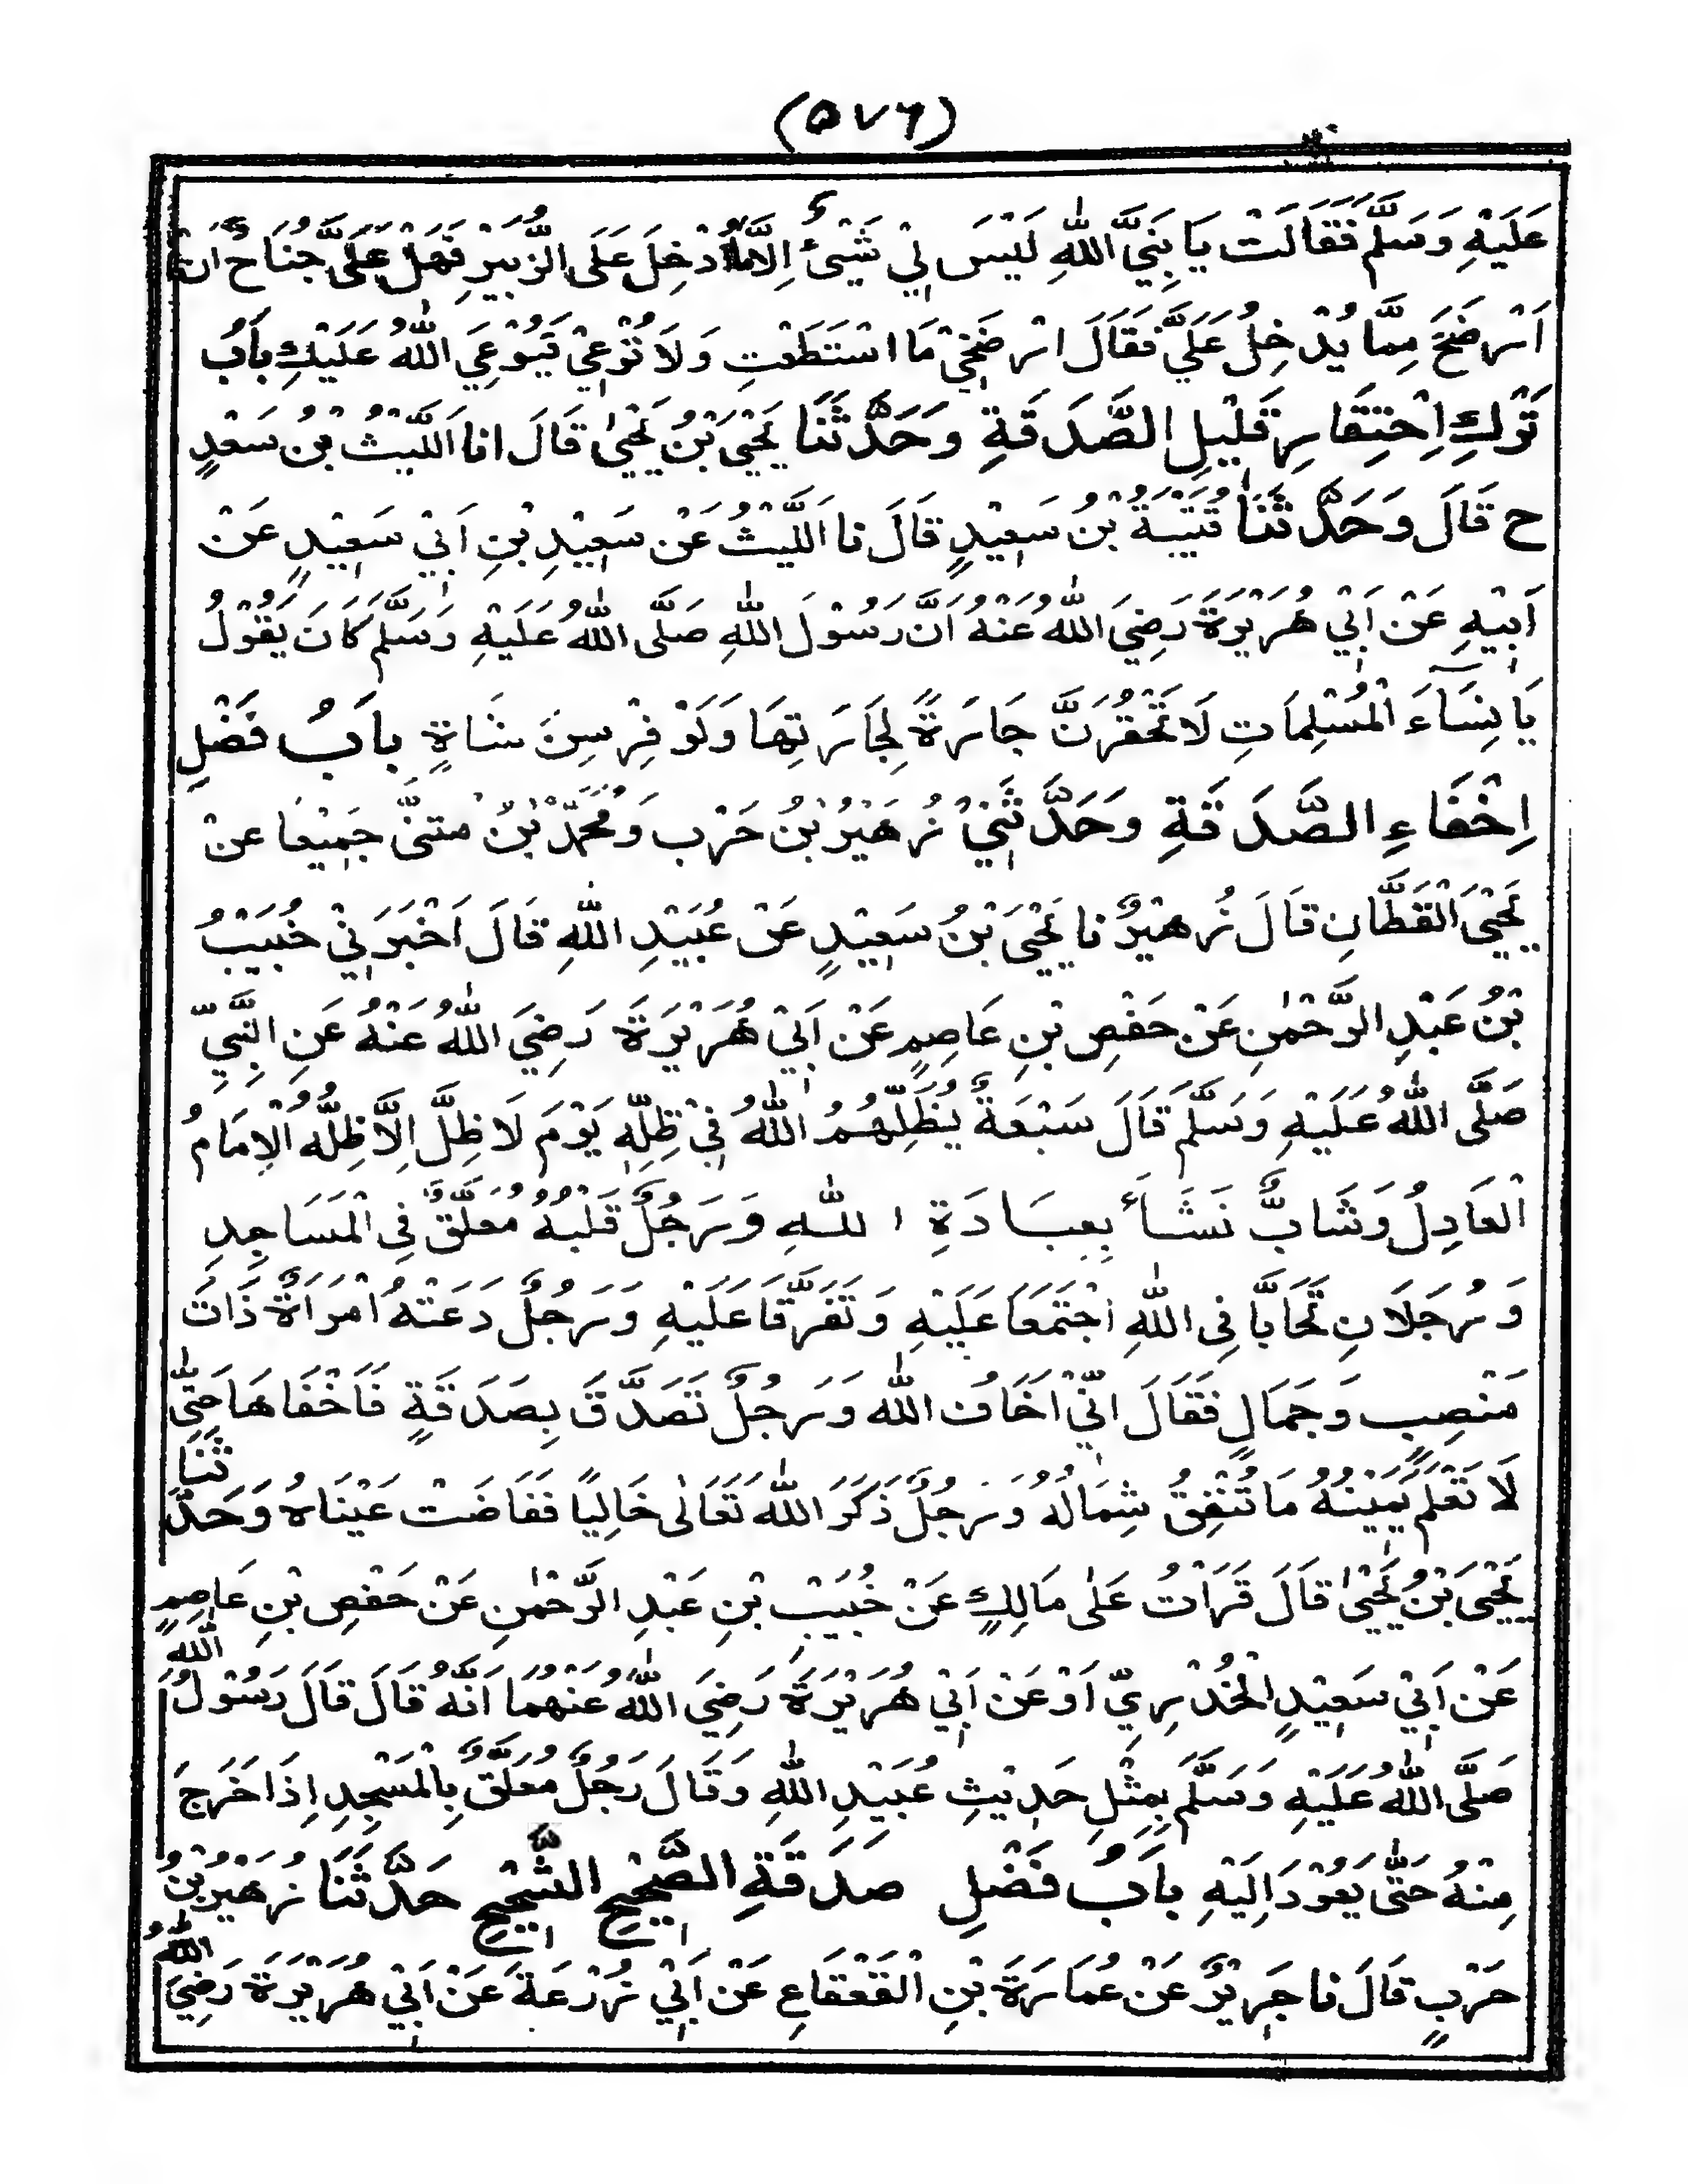 (۵۷۶)
عَلَيْهِ وَسَلَّمَ فَقَالَتْ يَا نَبِيَّ اللهِ لَيْسَ لِيْ شَيْءٌ اِلَّا مَا اَدْخَلَ عَلَى الزُّبَيْرِ فَهَلْ عَلَيَّ جُنَاحٌ اَنْ
اَرْضَخَ مِمَّا يُدْخِلُ عَلَيَّ فَقَالَ ارْضَخِيْ مَا اسْتَطَعْتِ وَلَا تُوْعِيْ فَيُوْعِيَ اللهُ عَلَيْكِ بَابُ
تَرْكِ اِحْتِقَارِ قَلِيْلِ الصَّدَقَةِ وَحَدَّثَنَا يَحْيَى بْنُ يَحْيٰى قَالَ انا اللَّيْثُ بْنُ سَعْدٍ
ح قَالَ وَحَدَّثَنَا قُتَيْبَةُ بْنُ سَعِيْدٍ قَالَ نا اللَّيْثُ عَنْ سَعِيْدِ بْنِ اَبِيْ سَعِيْدٍ عَنْ
اَبِيْهِ عَنْ اَبِيْ هُرَيْرَةَ رَضِيَ اللهُ عَنْهُ اَنَّ رَسُوْلَ اللهِ صَلَّى اللهُ عَلَيْهِ وَسَلَّمَ كَانَ يَقُوْلُ
يَا نِسَآءَ الْمُسْلِمَاتِ لَا تَحْقِرَنَّ جَارَةٌ لِجَارَتِهَا وَلَوْ فِرْسِنَ شَاةٍ بَابُ فَضْلِ
اِخْفَاءِ الصَّدَقَةِ وَحَدَّثَنِيْ زُهَيْرُ بْنُ حَرْبٍ وَمُحَمَّدُ بْنُ مثنى جَمِيْعًا عَنْ
يَحْيَى الْقَطَّانِ قَالَ زُهَيْرٌ نا يَحْيَى بْنُ سَعِيْدٍ عَنْ عُبَيْدِ اللهِ قَالَ اَخْبَرَنِيْ خُبَيْبُ
بْنُ عَبْدِ الرَّحْمٰنِ عَنْ حَفْصِ بْنِ عَاصِمٍ عَنْ اَبِيْ هُرَيْرَةَ رَضِيَ اللهُ عَنْهُ عَنِ النَّبِيِّ
صَلَّى اللهُ عَلَيْهِ وَسَلَّمَ قَالَ سَبْعَةٌ يُظِلُّهُمُ اللهُ فِيْ ظِلِّهٖ يَوْمَ لَا ظِلَّ اِلَّا ظِلُّهُ الْاِمَامُ
الْعَادِلُ وَشَابٌّ نَشَأَ بِعِبَادَةِ اللهِ وَرَجُلٌ قَلْبُهُ مُعَلَّقٌ فِى الْمَسَاجِدِ
وَرَجُلَانِ تَحَابَّا فِى اللهِ اجْتَمَعَا عَلَيْهِ وَتَفَرَّقَا عَلَيْهِ وَرَجُلٌ دَعَتْهُ امْرَاَةٌ ذَاتُ
مَنْصِبٍ وَجَمَالٍ فَقَالَ اِنِّيْ اَخَافُ اللهَ وَرَجُلٌ تَصَدَّقَ بِصَدَقَةٍ فَاَخْفَاهَا حَتّٰى
لَا تَعْلَمَ يَمِيْنُهُ مَا تُنْفِقُ شِمَالُهُ وَرَجُلٌ ذَكَرَ اللهَ تَعَالٰى خَالِيًا فَفَاضَتْ عَيْنَاهُ وَحَدَّثَنَا
يَحْيَى بْنُ يَحْيٰى قَالَ قَرَاْتُ عَلٰى مَالِكٍ عَنْ خُبَيْبِ بْنِ عَبْدِ الرَّحْمٰنِ عَنْ حَفْصِ بْنِ عَاصِمٍ
عَنْ اَبِيْ سَعِيْدٍ الْخُدْرِيِّ اَوْ عَنْ اَبِيْ هُرَيْرَةَ رَضِيَ اللهُ عَنْهُمَا اَنَّهُ قَالَ قَالَ رَسُوْلُ اللهِ
صَلَّى اللهُ عَلَيْهِ وَسَلَّمَ بِمِثْلِ حَدِيْثِ عُبَيْدِ اللهِ وَقَالَ رَجُلٌ مُعَلَّقٌ بِالْمَسْجِدِ اِذَا خَرَجَ
مِنْهُ حَتّٰى يَعُوْدَ اِلَيْهِ بَابُ فَضْلِ صَدَقَةِ الصَّحِيْحِ الشَّحِيْحِ حَدَّثَنَا زُهَيْرُ بْنُ
حَرْبٍ قَالَ نا جَرِيْرٌ عَنْ عُمَارَةَ بْنِ الْقَعْقَاعِ عَنْ اَبِيْ زُرْعَةَ عَنْ اَبِيْ هُرَيْرَةَ رَضِيَ اللهُ